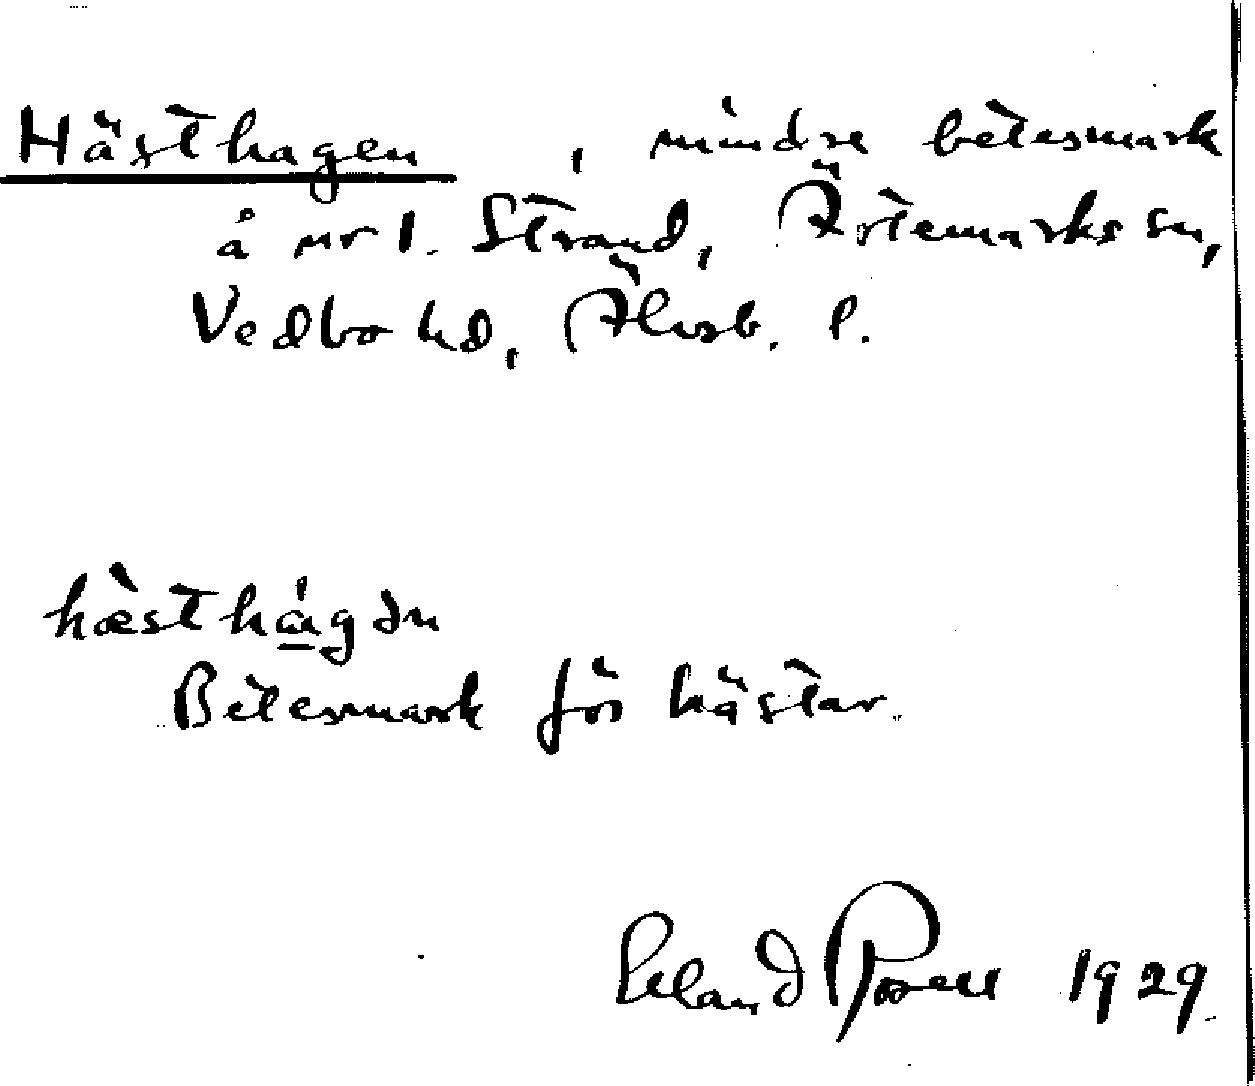 Hästhagen, mindre betesmark
å nr 1. Strand, Ärtemarks sn,
Vedbo hd, Älvsb. l.
hæsthágən
Betesmark för hästar.
Erland Rosell 1929